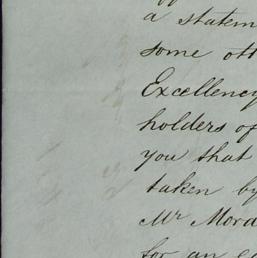 a statem
some oth
Excellency
holders of
you that
taken by
Mr Mord
for an